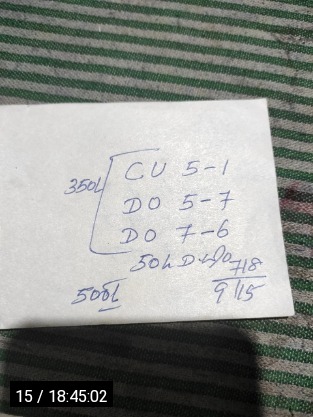 350L
CU 5-1
DO 5-7
DO 7-6
50L D
718
500L
9 115
15 / 18:45:02